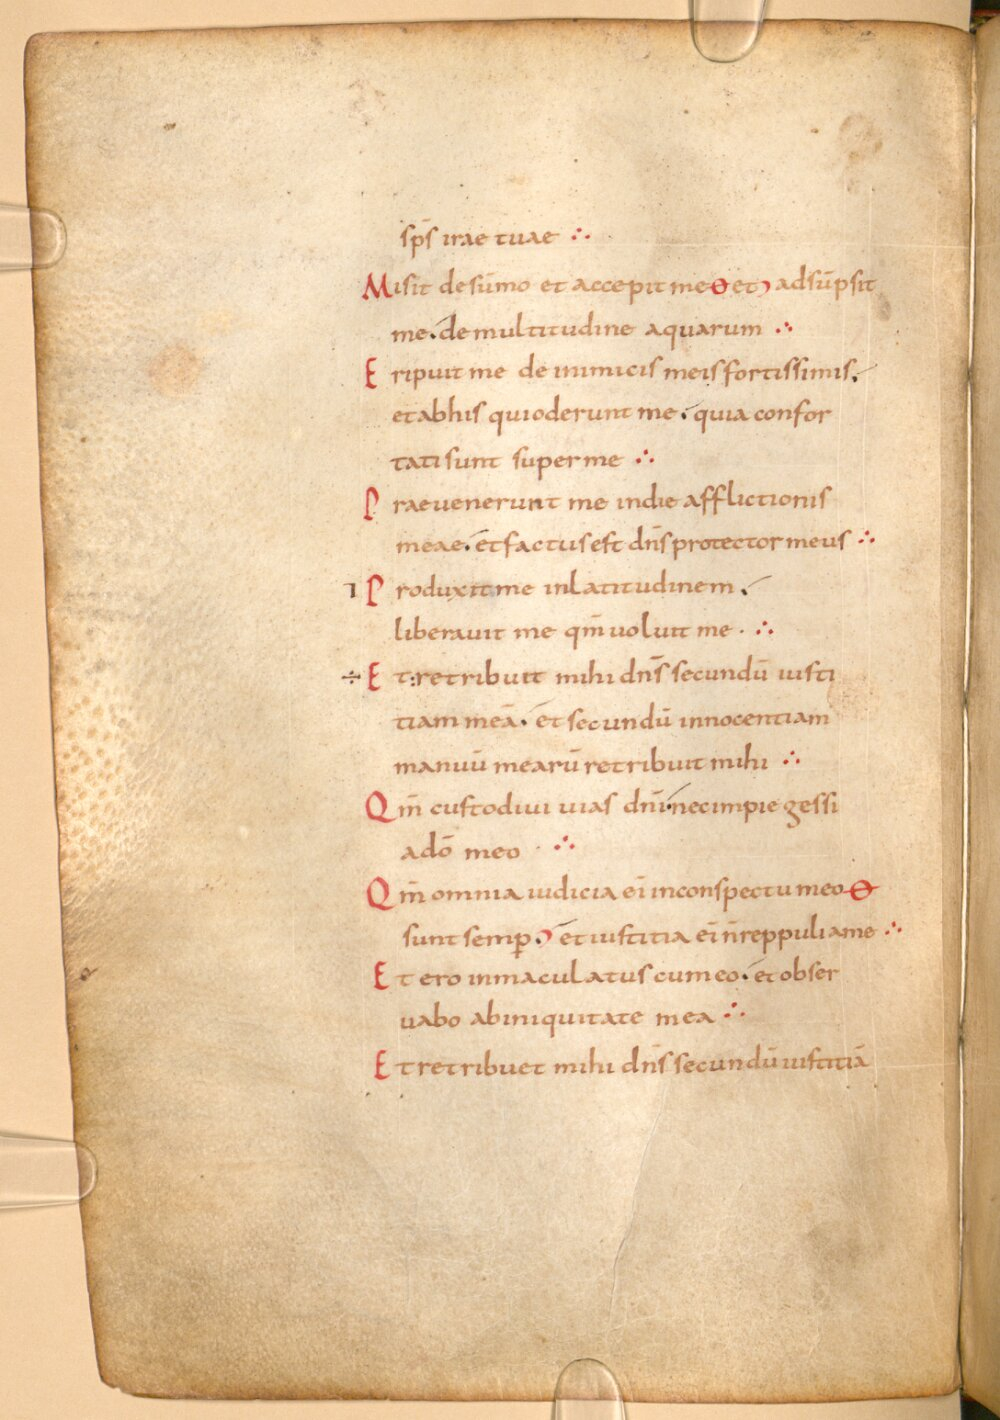 sp̄s irae tuae ∴
Misit desūmo et accepit me ɵ et ͽ adsūpsit
me. de multitudine aquarum ∴
Eripuit me de inimicis meis fortissimis.
et ab his qui oderunt me. quia confor
tati sunt super me ∴
Praeuenerunt me in die afflictionis
meae. et factus est dn̄s protector meus ∴
⁊ Produxit me in latitudinem.
liberauit me qm̄ uoluit me · ∴
÷ Et: retribuit mihi dn̄s secundū iusti
tiam meā. et secundū innocentiam
manuū mearū retribuit mihi ∴
Qm̄ custodiui uias dn̄i. nec impie gessi
a dō meo ∴
Qm̄ omnia iudicia eī in conspectu meo ɵ
sunt semp̱. ͽ et iustitia eī n̄ reppuli a me ∴
Et ero inmaculatus cum eo. et obser
uabo ab iniquitate mea ∴
Et retribuet mihi dn̄s secundū iustitiā